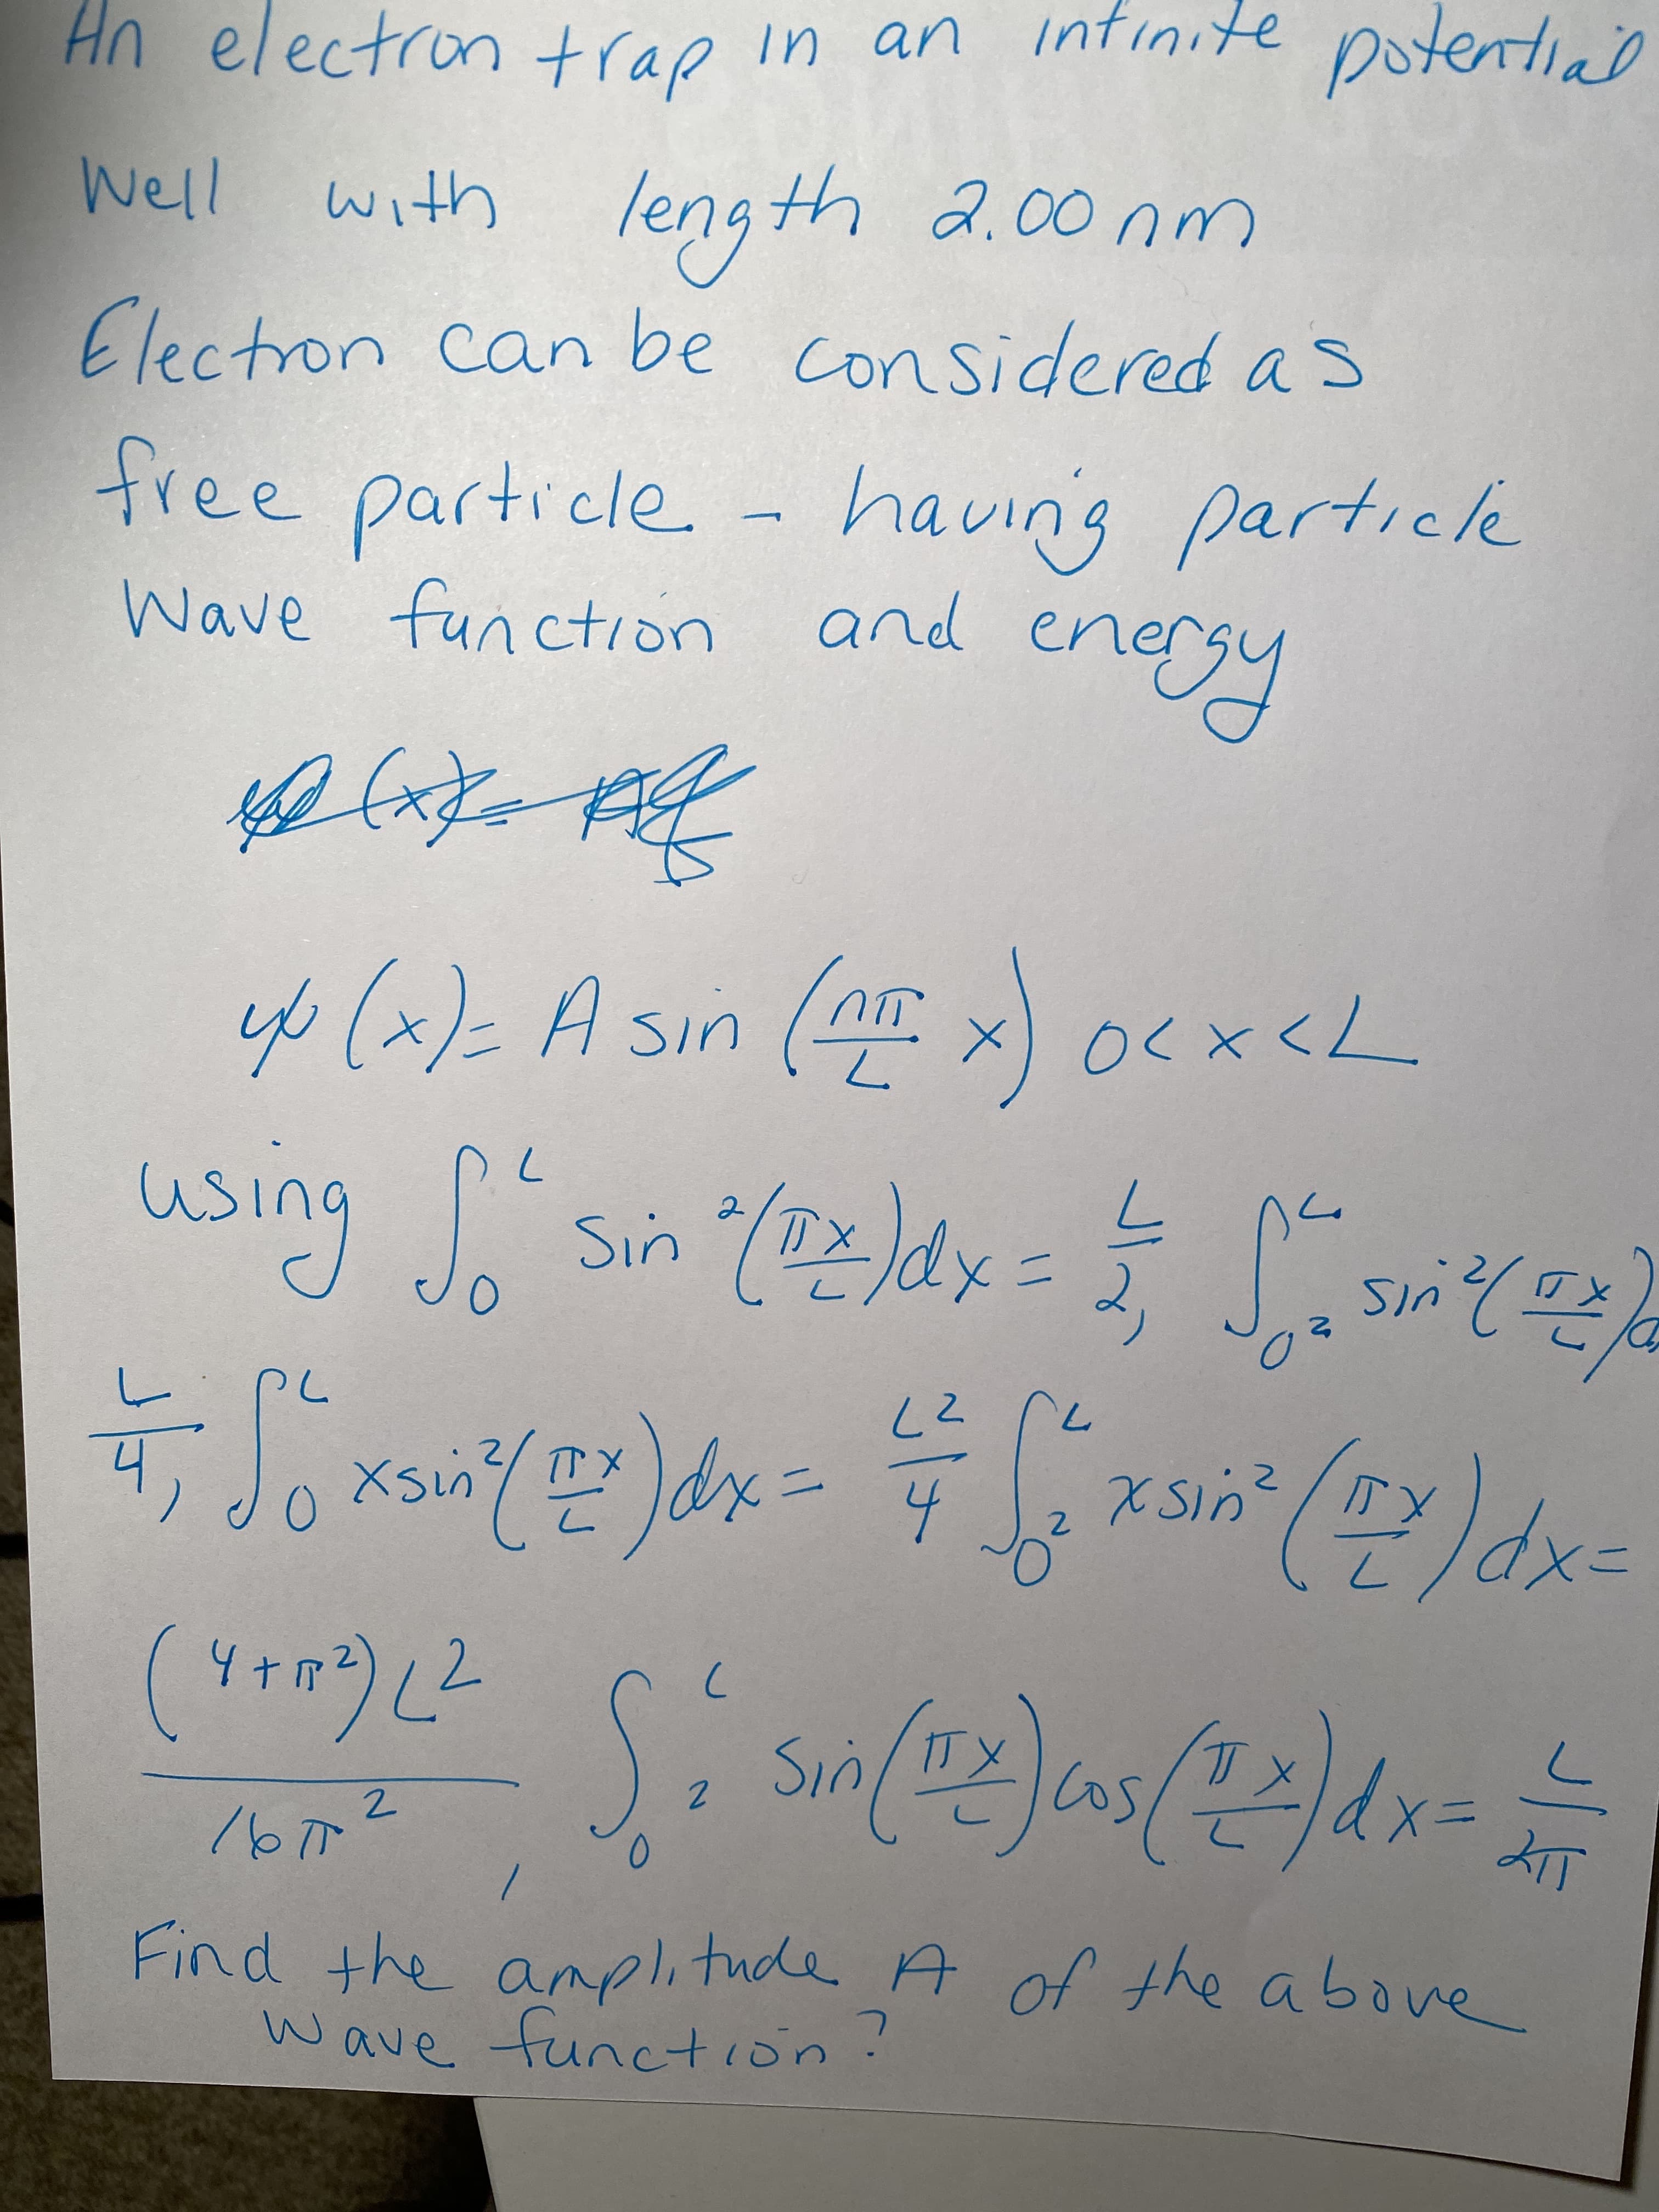 An electron trap in an infinite potential
Well with length 2.00 nm
Electron can be considered as
free particle - having particle
Wave function and energy
ψ(x) = A sin (nπ/L x) 0<x<L
using ∫₀ᴸ sin²(πx/L)dx = L/2, ∫₀₂ᴸ sin²(πx/L)d
L/4, ∫₀ᴸ x sin²(πx/L)dx = L²/4 ∫₀₂ᴸ x sin²(πx/L)dx =
(4+π²)L²/16π², ∫₀₂ᴸ sin(πx/L)cos(πx/L)dx = L/2π
Find the amplitude A of the above
Wave function?